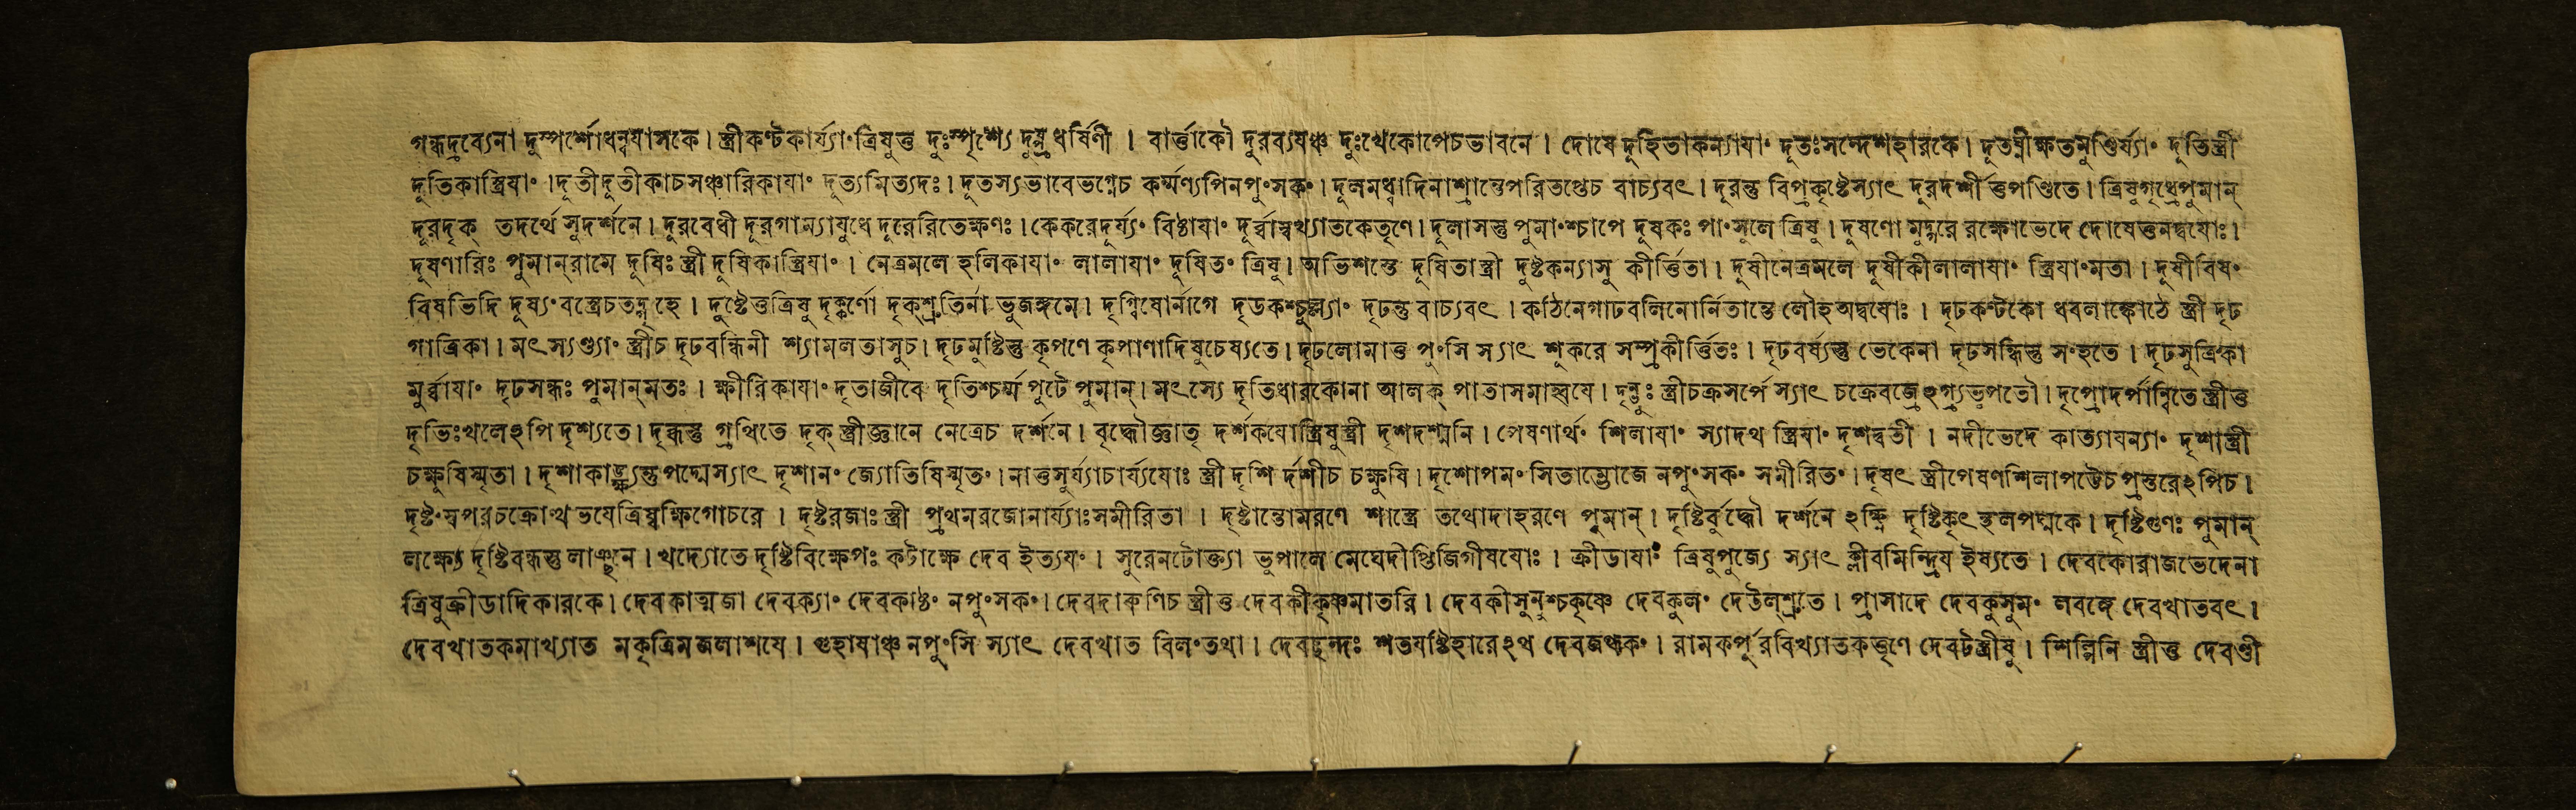 গন্ধদ্রব্যেনা দুস্পর্শোধন্বযাসকে। স্ত্রীকণ্টকার্য্যাং ত্রিষুত্তু দুঃস্পৃশ্যে দুষ্প্রধর্ষিণী । বার্ত্তাকৌ দুরব্যষঞ্চ দুঃখেকোপেচভাবনে । দোষে দুহিতাকন্যাযাং দূতঃসন্দেশহারকে। দূতঘ্নীক্ষতমুণ্ডির্য্যাং দূতিস্ত্রী
দূতিকাস্ত্রিযাং ।দূতীদূতীকাচসঞ্চারিকাযাং দূত্যমিত্যদঃ। দূতস্যভাবেভগ্নেচ কর্ম্মণ্যপিনপুংসকং । দূলমধ্বাদিনাশ্রান্তেপরিতপ্তেচ বাচ্যবৎ। দূরন্তু বিপ্রকৃষ্টেস্যাৎ দূরদর্শীত্তপণ্ডিতে। ত্রিষুগৃধ্রেপুমান্
দূরদৃক্ তদর্থে সুদর্শনে। দূরবেধী দূরগাম্যাযুধে দূরেরিতেক্ষণঃ। কেকরেদূর্য্যং বিষ্ঠাযাং দূর্ব্বাস্বখ্যাতকেতৃণে। দূলাসন্তু পুমাংশ্চাপে দূষকঃ পাংসুলে ত্রিষু। দূষণো মুদ্গরে রক্ষোভেদে দোষেত্তনদ্বযোঃ।
দূষণারিঃ পুমান্‌রামে দূষিঃ স্ত্রী দূষিকাস্ত্রিযাং । নেত্রমলে হলিকাযাং লালাযাং দূষিতং ত্রিষু। অভিশস্তে দূষিতাস্ত্রী দুষ্টকন্যাসু কীর্ত্তিতা। দূষীনেত্রমলে দূষীকীলালাযাং স্ত্রিযাংমতা। দূষীবিষং
বিষভিদি দূষ্যং বস্ত্রেচতদ্গৃহে । দুষ্টেত্তত্রিষু দৃক্কর্ণো দৃক্‌শ্রুতির্না ভুজঙ্গমে। দৃগ্বিষোর্নাগে দৃডকশ্চুল্যাং দৃঢন্তু বাচ্যবৎ । কঠিনেগাঢবলিনোর্নিতান্তে লৌহ অদ্বযোঃ । দৃঢকণ্টকো ধবলাঙ্কোঠে স্ত্রী দৃঢ
গাত্রিকা। মৎস্যণ্ড্যাং স্ত্রীচ দৃঢবন্ধিনী শ্যামলতাসুচ। দৃঢমুষ্টিস্তু কৃপণে কৃপাণাদিষুচেষ্যতে। দৃঢলোমাত্ত পুংসি স্যাৎ শূকরে সম্প্রকীর্ত্তিতঃ। দৃঢবর্ষ্যস্তু ভেকেনা দৃঢসন্ধিস্তু সংহতে । দৃঢসূত্রিকা
মুর্ব্বাযাং দৃঢসন্ধঃ পুমান্‌মতঃ । ক্ষীরিকাযাং দৃতাজীবে দৃতিশ্চর্ম্ম পুটে পুমান্। মৎস্যে দৃতিধারকোনা আলক্ পাতাসমাহ্বযে। দৃন্ভুঃ স্ত্রীচক্রসর্পে স্যাৎ চক্রেবজ্রেঽগ্ন্যভূপতৌ। দৃপ্রোদর্পান্বিতে স্ত্রীত্ত
দৃভিঃখলেঽপি দৃশ্যতে। দৃব্ধস্তু গ্রথিতে দৃক্ স্ত্রীজ্ঞানে নেত্রেচ দর্শনে। বৃদ্ধৌজ্ঞাতৃ দর্শকযোস্ত্রিষুস্ত্রী দৃশদশ্মনি। পেষণার্থং শিলাযাং স্যাদথ স্ত্রিযাং দৃশদ্বতী । নদীভেদে কাত্যাযন্যাং দৃশাস্ত্রী
চক্ষুষিস্মৃতা। দৃশাকাঙ্ক্ষ্যন্তুপদ্মেস্যাৎ দৃশানং জ্যোতিষিস্মৃতং। নাত্তসূর্য্যাচার্য্যযোঃ স্ত্রী দৃশি র্দশীচ চক্ষুষি। দৃশোপমং সিতাম্ভোজে নপুংসকং সমীরিতং। দৃষৎ স্ত্রীপেষণশিলাপট্টেচ প্রস্তরেঽপিচ।
দৃষ্টংস্বপরচক্রোত্থ ভযেত্রিষ্বক্ষিগোচরে । দৃষ্টরজাঃ স্ত্রী প্রথমরজোনার্য্যাঃসমীরিতা । দৃষ্টান্তোমরণে শাস্ত্রে তথোদাহরণে পুমান্। দৃষ্টির্বুদ্ধৌ দর্শনে ঽক্ষ্ণি দৃষ্টিকৃৎ স্থলপদ্মকে। দৃষ্টিগুণঃ পুমান্
লক্ষ্যে দৃষ্টিবন্ধস্তু লাঞ্ছনে । খদ্যোতে দৃষ্টিবিক্ষেপঃ কটাক্ষে দেব ইত্যযং । সুরেনটোক্ত্যা ভুপালে মেঘেদীপ্তিজিগীষযোঃ । ক্রীডাযাং ত্রিষুপূজ্যে স্যাৎ ক্লীবমিন্দ্রিয ইষ্যতে। দেবকোরাজভেদেনা
ত্রিষুক্রীডাদিকারকে। দেবকাত্মজা দেবক্যাং দেবকাষ্ঠং নপুংসকং। দেবদারুণিচ স্ত্রীত্ত দেবকীকৃষ্ণমাতরি। দেবকীসূনুশ্চকৃষ্ণে দেবকুলং দেউল্‌শ্রুতে। প্রাসাদে দেবকুসুমং লবঙ্গে দেবখাতবৎ।
দেবখাতকমাখ্যাত মকৃত্রিমজলাশযে। গুহাযাঞ্চ নপুংসি স্যাৎ দেবখাত বিলং তথা। দেবচ্ছন্দঃ শতযষ্টিহারেঽথ দেবজগ্ধকং। রামকর্পূরবিখ্যাতকত্তৃণে দেবটস্ত্রীষু। শিল্পিনি স্ত্রীত্ত দেবণ্ডী